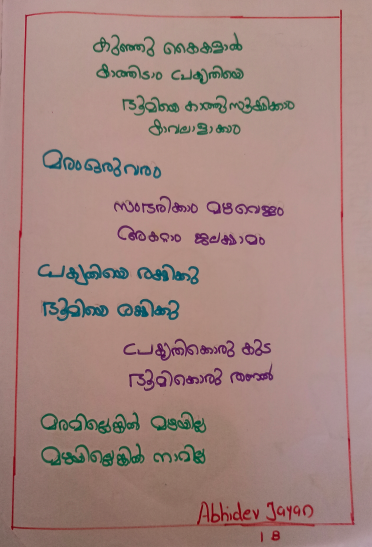 കുഞ്ഞു കൈകളാൽ
കാത്തിടാം പ്രകൃതിയെ
ഭൂമിയെ കാത്തുസൂക്ഷിക്കാം
കാവലാളാകാം
മരം ഒരു വരം
സംഭരിക്കാം മഴവെള്ളം
അകറ്റാം ജലക്ഷാമം
പ്രകൃതിയെ രക്ഷിക്കു
ഭൂമിയെ രക്ഷിക്കു
പ്രകൃതിക്കൊരു കുട
ഭൂമിക്കൊരു തണൽ
മരമില്ലെങ്കിൽ മഴയില്ല
മഴയില്ലെങ്കിൽ നാമില്ല
Abhidev Jayan
1 B